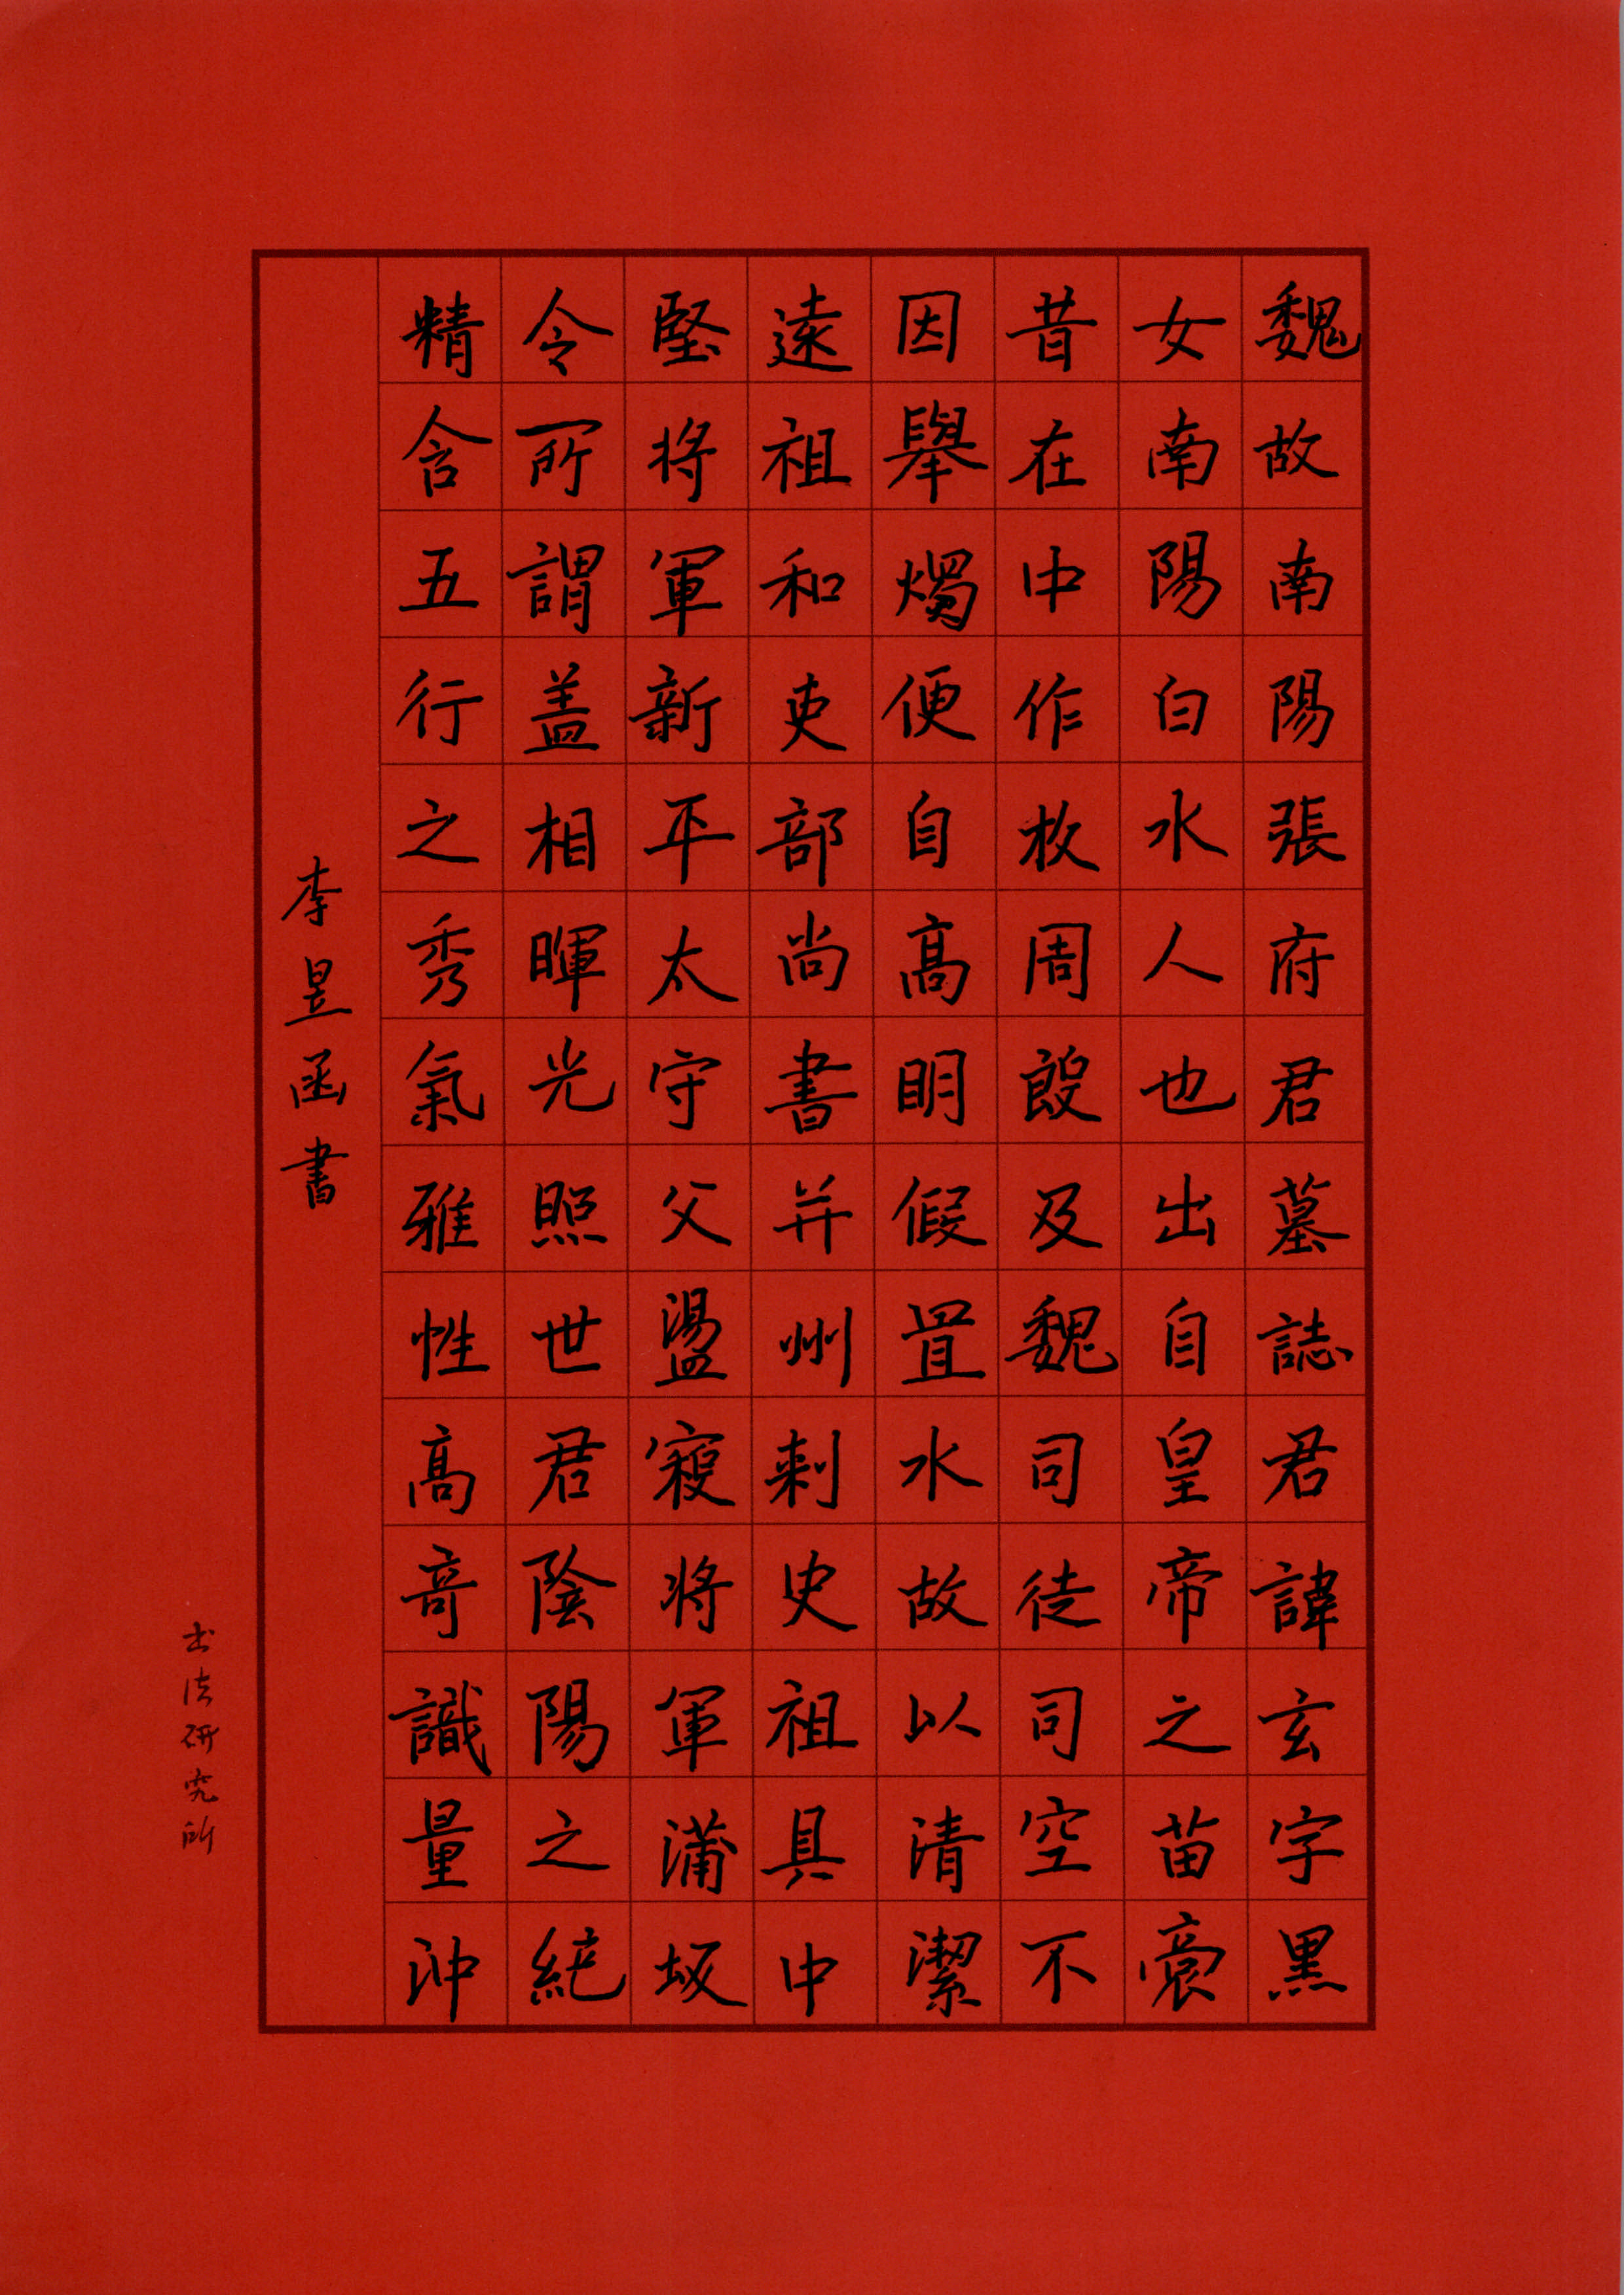 魏故南陽張府君墓誌君諱玄字黑
女南陽白水人也出自皇帝之苗裔
昔在中作牧周殷及魏司徒司空不
因舉燭便自高明假置水故以清潔
遠祖和吏部尚書并州刺史祖具中
堅將軍新平太守父盪寇將軍蒲坂
令所謂蓋相暉光照世君陰陽之純
精含五行之秀氣雅性高奇識量沖
李昱函書
书法研究所